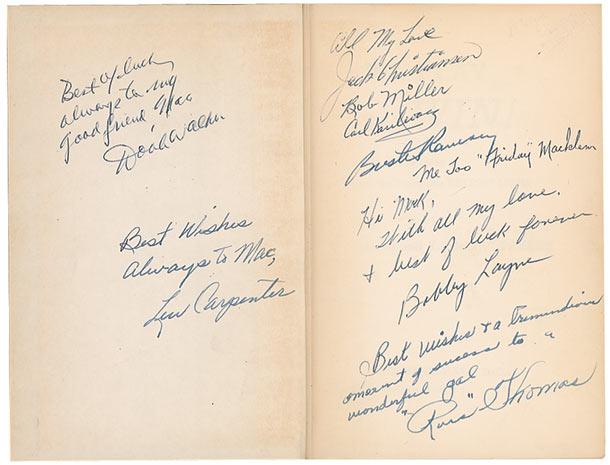 Best of luck
always to my
good friend Mac
Doak Walker
Best Wishes
Always to Mac,
Lew Carpenter
All My Love
Jack Christiansen
Bob Miller
Carl Karilivacz
Buster Ramsey
Me Too "Friday" Macklem
Hi Mack,
With all my love.
& best of luck forever
Bobby Layne
Best wishes & a tremendious
amount of sucess to a
wonderful gal
"Russ" Thomas